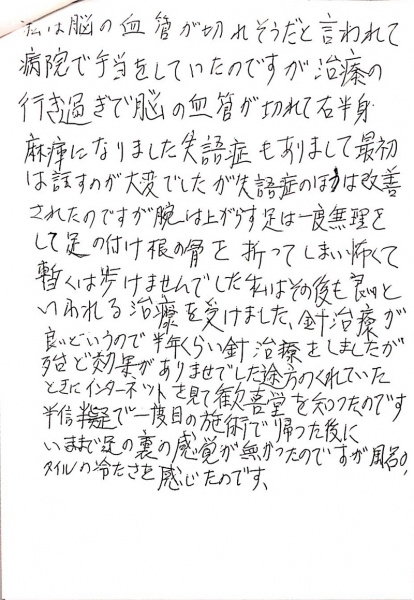 私は脳の血管が切れそうだと言われて
病院で手当をしていたのですが治療の
行き過ぎで脳の血管が切れて右半身
麻痺になりました失語症もありまして最初
は話すのが大変でしたが失語症のほうは改善
されたのですが腕は上がらす足は一度無理を
して足の付け根の骨を折ってしまい怖くて
暫くは歩けませんでした私はその後も良いと
いわれる治療を受けました、針治療が
良いというので半年くらい針治療をしましたが
殆ど効果がありませでした途方のくれていた
ときにインターネットを見て歓喜堂を知ったのです
半信半疑で一度目の施術で帰った後に
いままで足の裏の感覚が無かったのですが風呂の
タイルの冷たさを感じたのです、